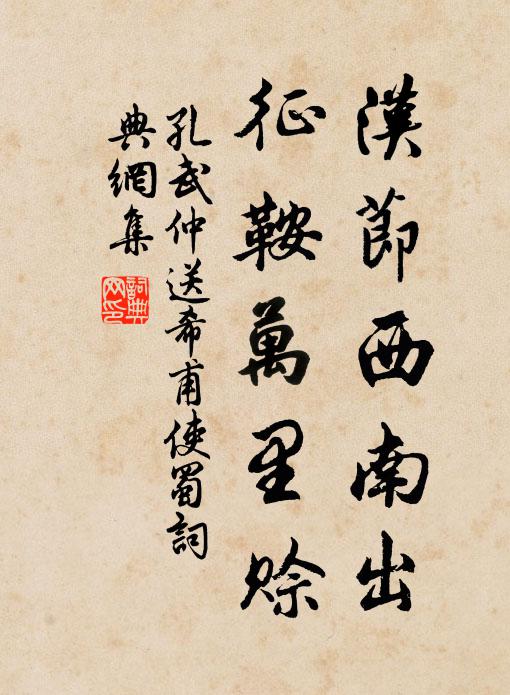 漢節西南出
征鞍萬里賒
孔武仲送希甫使蜀詞
典網集
詞典
网印